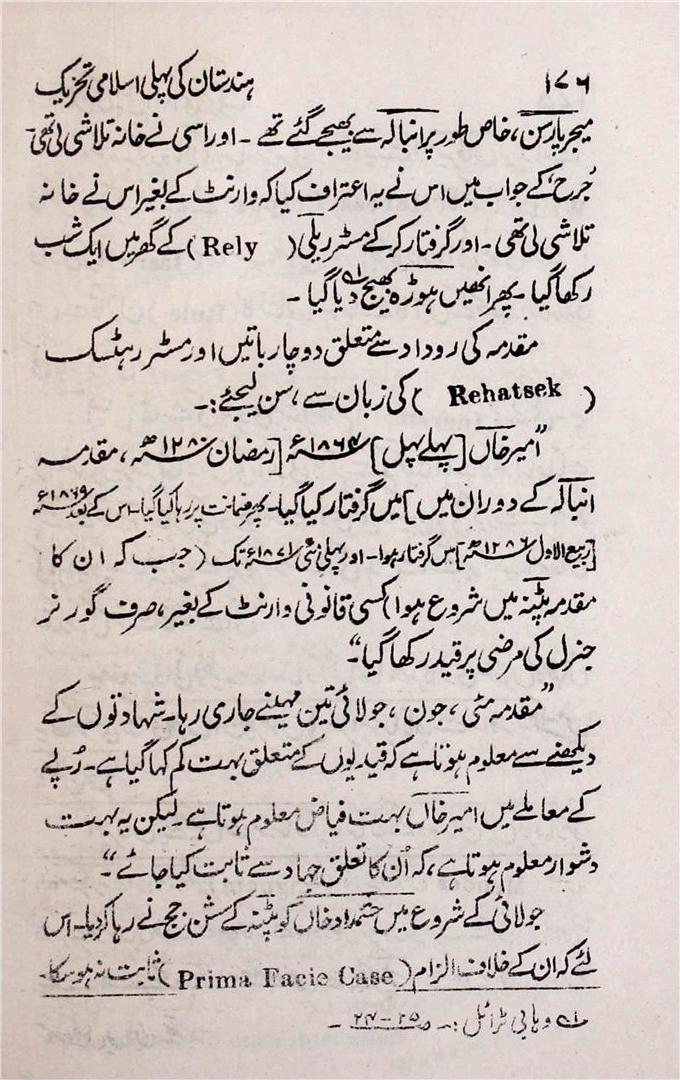 ۱۷۶ ہندستان کی پہلی اسلامی تحریک
میجر پارسن، خاص طور پر انبالہ سے بھیجے گئے تھے ۔ اور اسی نے خانہ تلاشی لی تھی
جُرح، کے جواب میں اس نے یہ اعتراف کیا کہ وارنٹ کے بغیر اس نے خانہ
تلاشی لی تھی ۔ اور گرفتار کرکے مسٹر ریلی ( Rely ) کے گھر میں ایک شب
رکھا گیا ۔ پھر انھیں ہوڑہ بھیج دیا گیا ؎۱ ۔
مقدمہ کی روداد سے متعلق دو چار باتیں اور مسٹر رہٹسک
( Rehatsek ) کی زبان سے، سن لیجئے :۔
"امیر خاں [پہلے پہل] ۱۸۶۴ء [رمضان ۱۲۸۰ھ، مقدمہ
انبالہ کے دوران میں] میں گرفتار کیا گیا۔ پھر ضمانت پر رہا کیا گیا۔ اس کے بعد ۱۸۶۹ء
[ربیع الاول ۱۲۸۶ھ] میں گرفتار ہوا ۔ اور پہلی مئی ۱۸۷۱ء تک ( جب کہ ان کا
مقدمہ پٹنہ میں شروع ہوا) کسی قانونی وارنٹ کے بغیر، صرف گورنر
جنرل کی مرضی پر قید رکھا گیا"۔
"مقدمہ مئی، جون، جولائی تین مہینے جاری رہا۔ شہادتوں کے
دیکھنے سے معلوم ہوتا ہے کہ قیدیوں کے متعلق بہت کم کہا گیا ہے۔ رُپے
کے معاملے میں امیر خاں بہت فیاض معلوم ہوتا ہے۔ لیکن یہ بہت
دشوار معلوم ہوتا ہے، کہ اُن کا تعلق جہاد سے ثابت کیا جائے"۔
جولائی کے شروع میں حشمداد خاں کو پٹنہ کے سشن جج نے رہا کر دیا۔ اس
لئے کہ ان کے خلاف الزام (Prima Facie Case) ثابت نہ ہو سکا۔
؎۱ وہابی ٹرائل :۔ ص ۲۵-۲۴ ۔